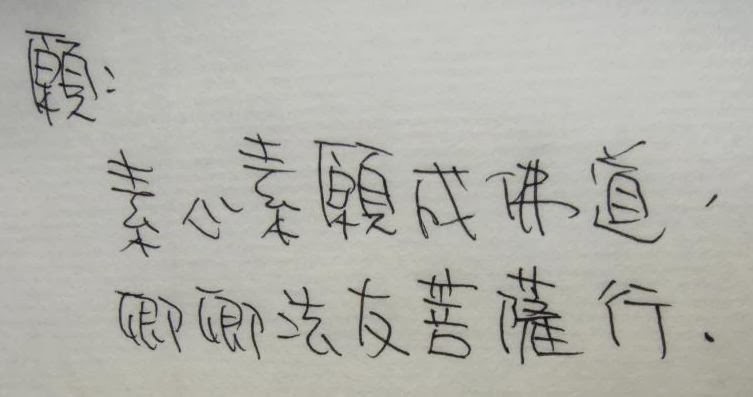 願：
素心素願成佛道，
卿卿法友菩薩行．